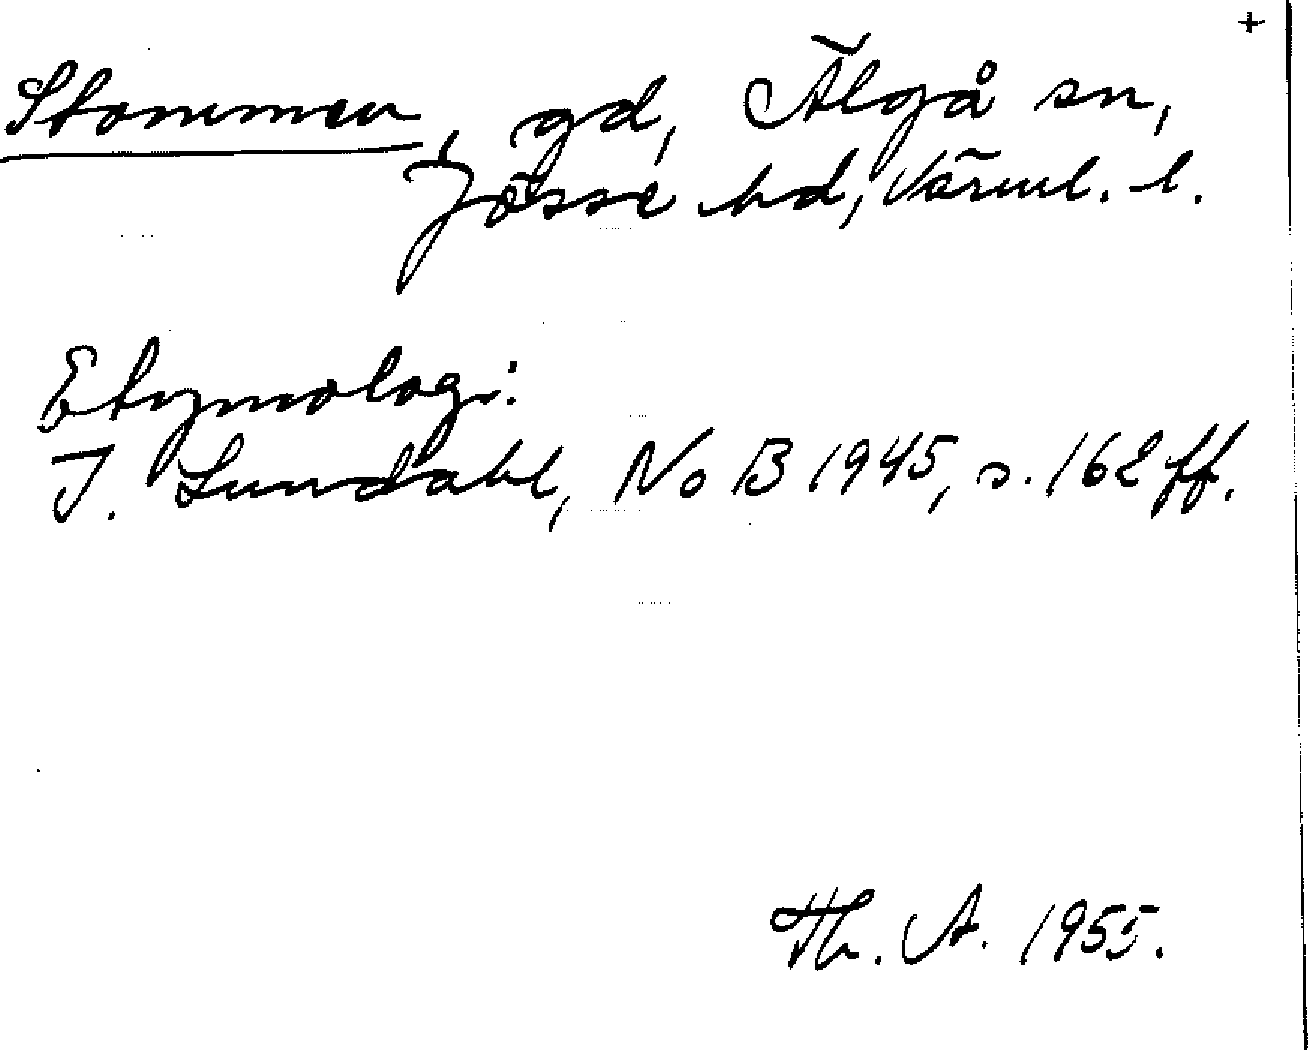 +
Stommen, gd, Älgå sn,
Jösse hd, Värml. l.
Etymologi:
I. Lundahl, NoB 1945, s. 162 ff.
Th. A. 1955.